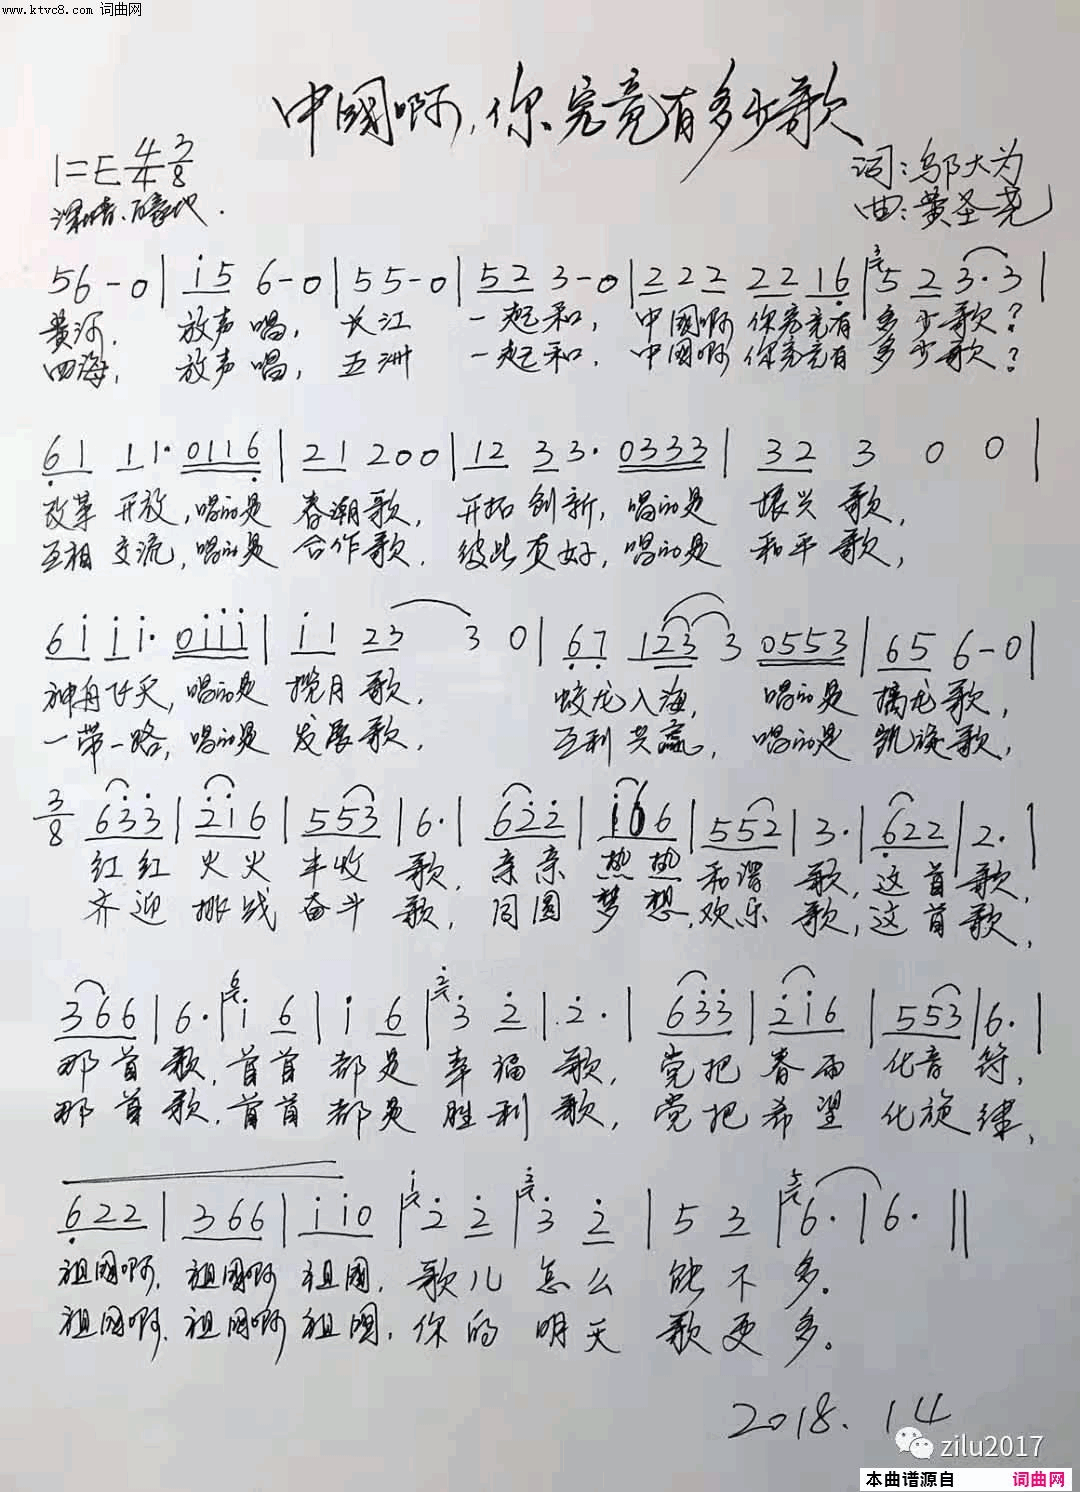 www.ktvc8.com 词曲网
中國啊,你究竟有多少歌
1=E 4/4 3/8
词:邬大为
深情、豪迈地.
曲:黄圣尧
56-0| i5 6-0| 55-0| 52 3-0| 222 22 16| 5 2 3·3|
黄河, 放声唱, 长江 一起和, 中國啊 你究竟有 多少歌?
四海, 放声唱, 五洲 一起和, 中國啊 你究竟有 多少歌?
61 11· 0116| 21 200| 12 33· 0333| 32 3 0 0|
改革开放,唱的是 春潮歌, 开拓创新, 唱的是 振兴歌,
互相交流,唱的是 合作歌, 彼此友好, 唱的是 和平歌,
6i ii· 0iii| i1 23 3 0| 67 123 3 0553| 65 6-0|
神舟飞天,唱的是 揽月歌, 蛟龙入海, 唱的是 擒龙歌,
一带一路,唱的是 发展歌, 互利共赢, 唱的是 凯旋歌,
3/8 633| 2i6| 553| 6·| 622| i66| 552| 3·| 622| 2·|
红红 火火 丰收 歌, 亲亲 热热 和谐 歌,这首歌,
齐迎 挑战 奋斗 歌, 同圆 梦想,欢乐 歌,这首歌,
366| 6·| i 6| i 6| 3 2| 2·| 633| 2i6| 553| 6·|
那首歌,首首 都是 幸福 歌, 党把 春雨 化音符,
那首歌,首首 都是 胜利 歌, 党把 希望 化旋律,
622| 366| ii0| 2 2| 3 2| 5 3| 6·| 6·||
祖国啊,祖国啊 祖国, 歌儿 怎么 能不多。
祖国啊,祖国啊 祖国,你的 明天 歌更多。
2018.14
zilu2017
本曲谱源自 词曲网